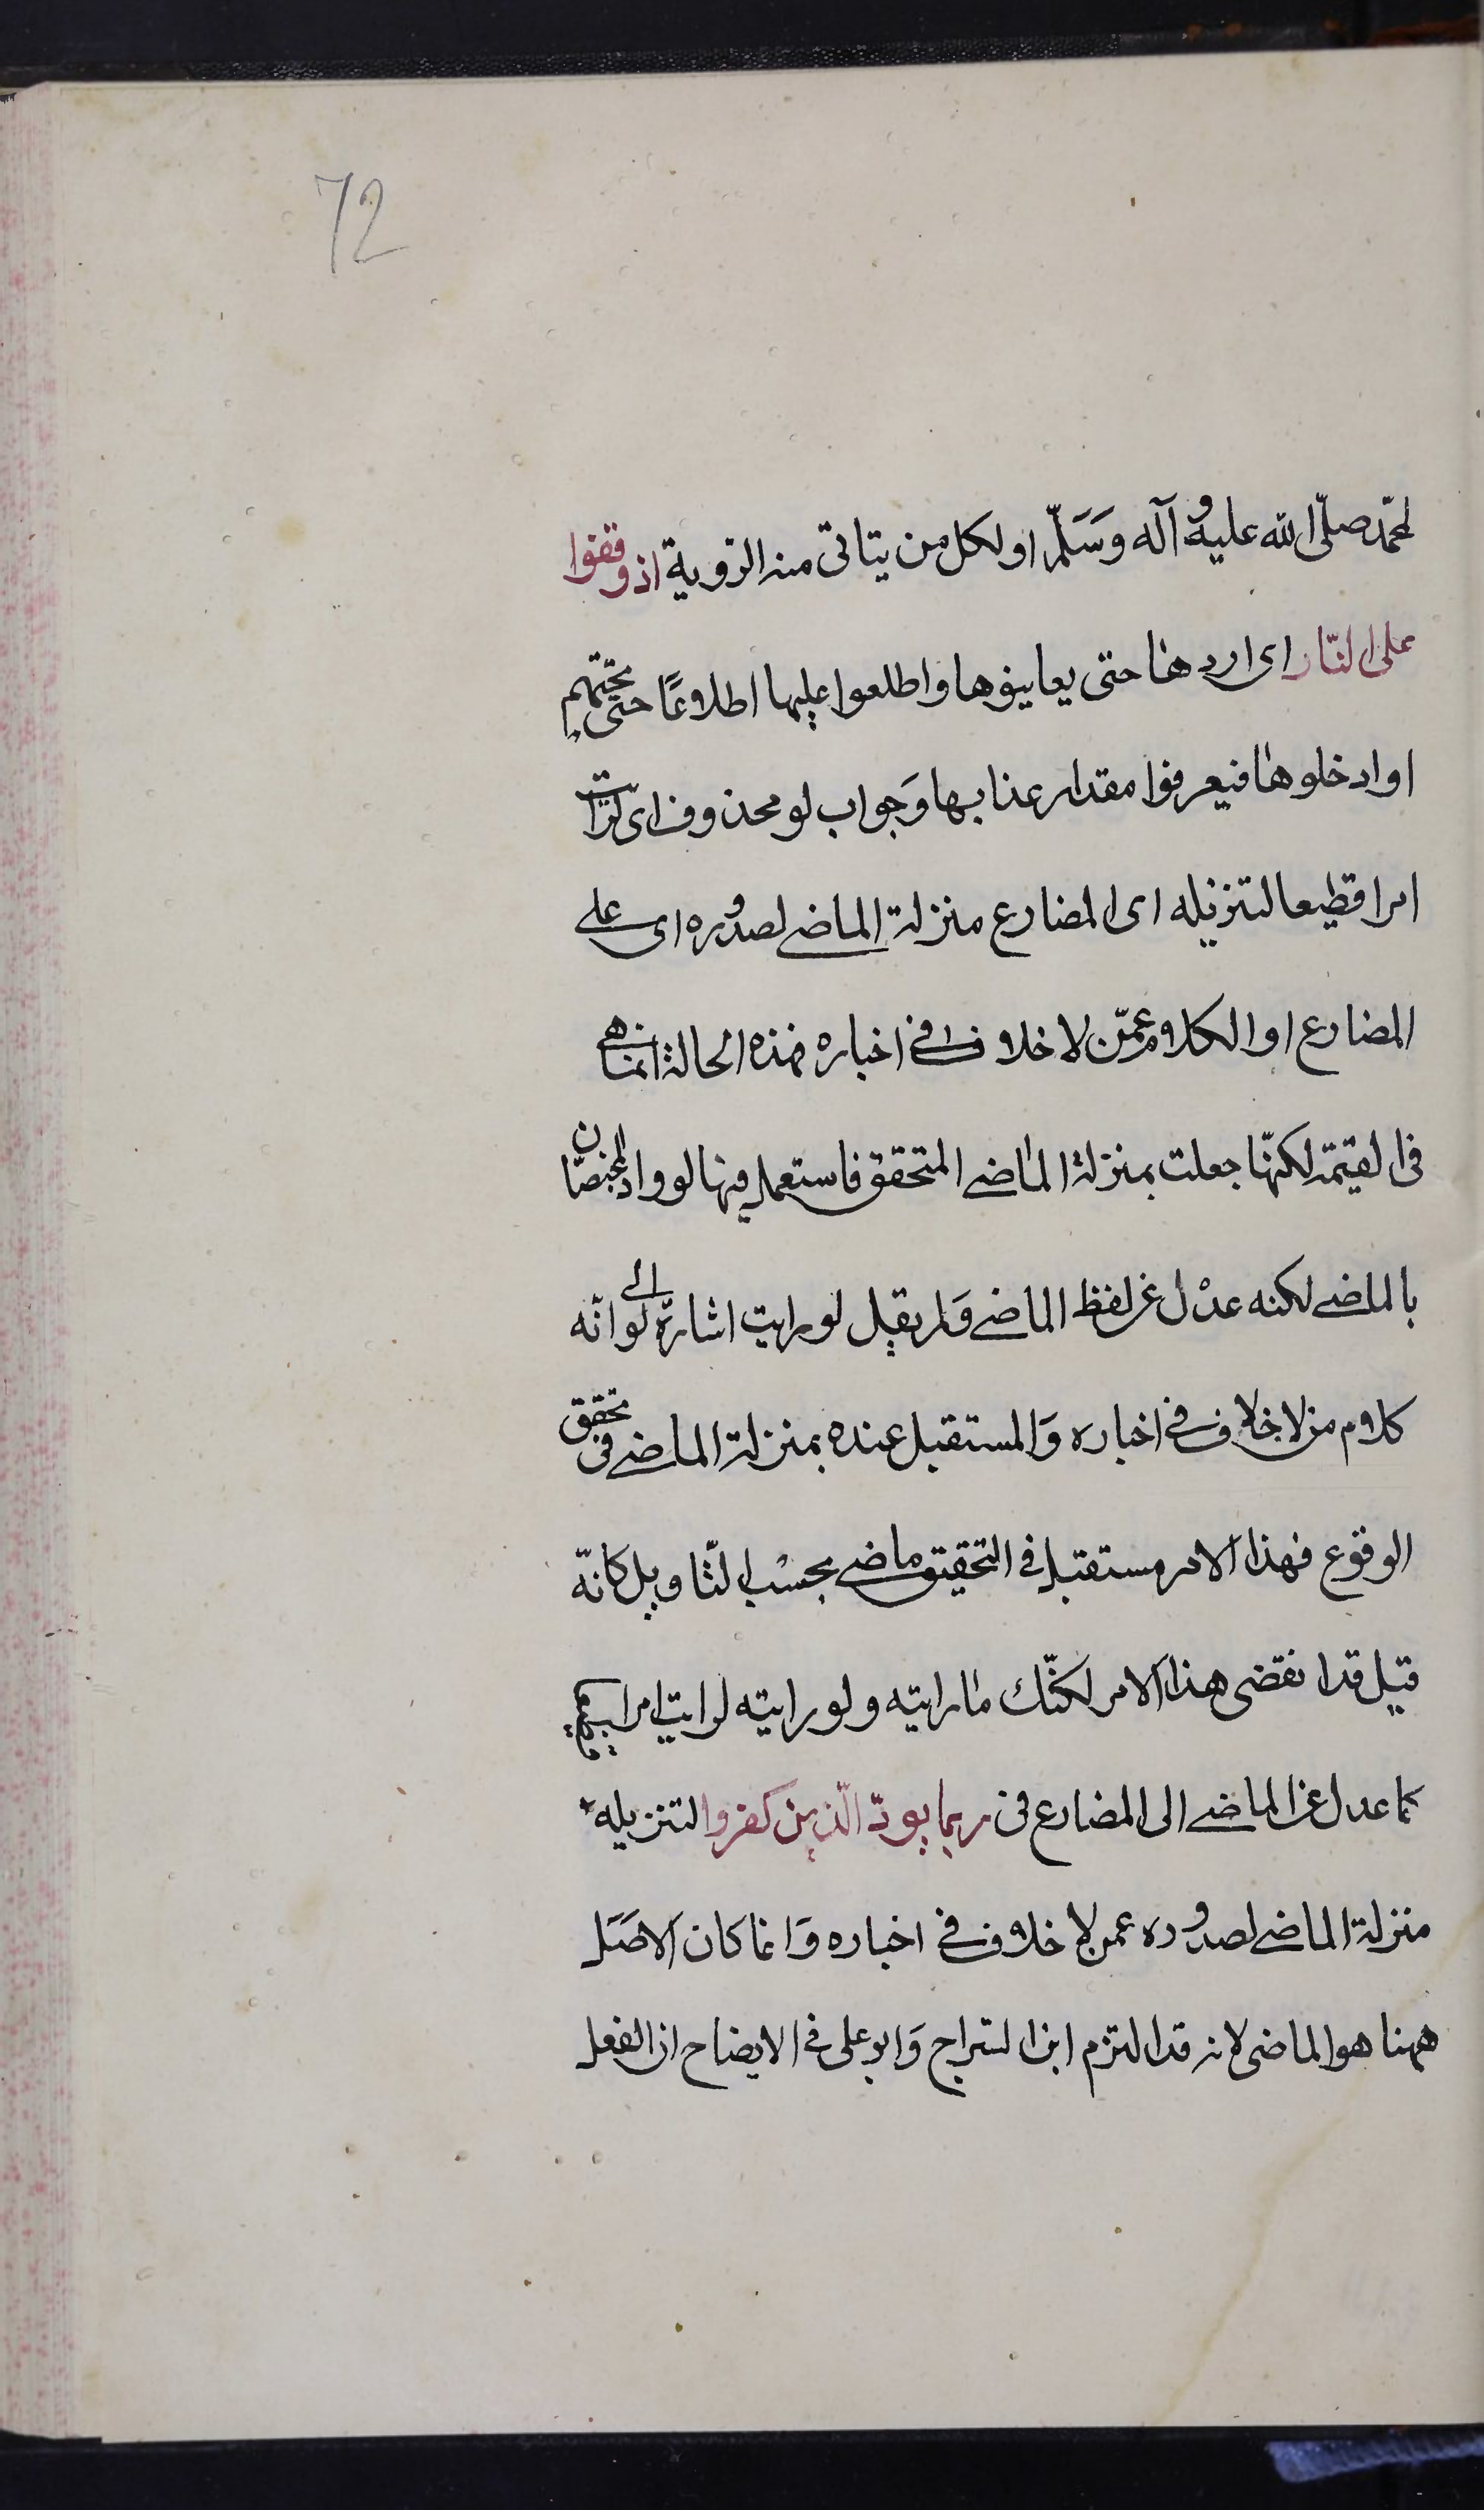 72
لمحمّد صلّى الله عليه وآله وَسَلّم او لكل من يتاتى منه الرّوية اذ وقفوا
على النّار اى اروها حتى يعاينوها واطلعوا عليها اطلاعًا حتى تحتهم
او ادخلوها فيعرفوا مقدار عذابها وَجواب لو محذوف اى لرأيت
امرا فظيعا لتنزيله اى المضارع منزلة الماضے لصدوره اى علے
المضارع او الكلام عمّن لا خلاف فے اخباره فهذه الحالة انما هے
فى القيٰمة لكنّها جعلت بمنزلة الماضے المتحقق فاستعمل فيها لو واذ المختصّان
بالماضے لكنه عدْل عن لفظ الماضے وَلم يقل لو رايت اشارة الے انّه
كلام من لا خلاف فے اخباره وَالمستقبل عنده بمنزلة الماضے فى تحقق
الوقوع فهذا الامر مستقبل فے التحقيق ماضے بحسْب التّاويل كانّه
قيل قد انقضى هذا الامر لكنّك ما رايته ولو رايته لرايت امرا
كما عدل عن الماضے الى المضارع فى ربما يودّ الّذين كفروا لتنزيله
منزلة الماضے لصدوره عمن لا خلاف فے اخباره وَانما كان الاصَل
ههنا هو الماضى لانه قد التزم ابن السّراج وَابو على فے الايضاح ان الفعل